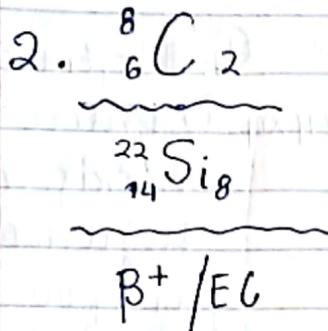 2. ⁸₆C₂
²²₁₄Si₈
β⁺/EC